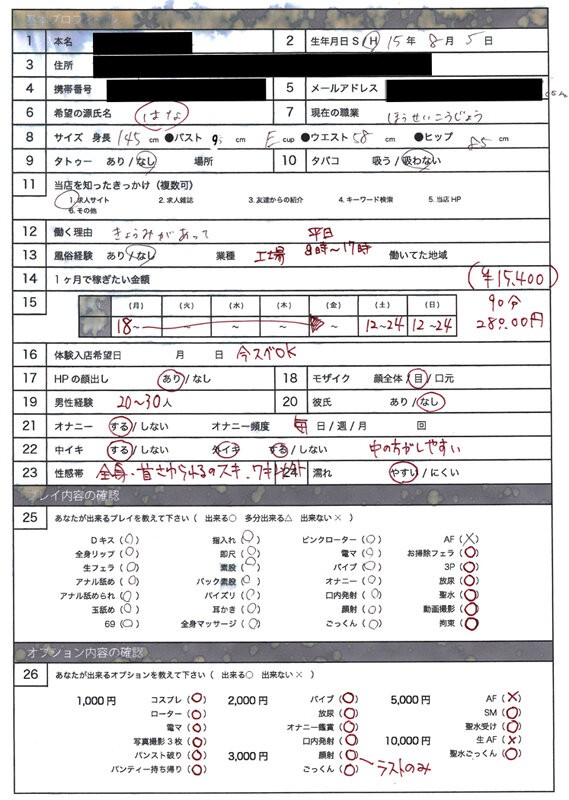 基本プロフィール
1 本名 2 生年月日 S / H 15年 8月 5日
3 住所
4 携帯番号 5 メールアドレス
6 希望の源氏名 はな 7 現在の職業 ほうせいこうじょう
8 サイズ 身長 145 cm ●バスト cm E cup ●ウエスト 58 cm ●ヒップ 85 cm
9 タトゥー あり / なし 場所 10 タバコ 吸う / 吸わない
11 当店を知ったきっかけ (複数可)
1.求人サイト 2.求人雑誌 3.友達からの紹介 4.キーワード検索 5.当店HP
6.その他
12 働く理由 きょうみがあって 平日
13 風俗経験 あり / なし 業種 工場 8時～17時 働いてた地域
14 1ヶ月で稼ぎたい金額 (¥15,400)
15 (月) (火) (水) (木) (金) (土) (日) 90分
18～ ～ ～ ～ ～ 12～24 12～24 28000円
16 体験入店希望日 月 日 今スぐOK
17 HPの顔出し あり / なし 18 モザイク 顔全体 / 目 / 口元
19 男性経験 20～30人 20 彼氏 あり / なし
21 オナニー する / しない オナニー頻度 毎 日 / 週 / 月 回
22 中イキ する / しない 外イキ する / しない 中の方がしやすい
23 性感帯 全身・首さわられるのスキ、ワキ 24 濡れ やすい / にくい
プレイ内容の確認
25 あなたが出来るプレイを教えて下さい ( 出来る○ 多分出来る△ 出来ない× )
Dキス (○) 指入れ (○) ピンクローター (○) AF (×)
全身リップ (○) 即尺 (○) 電マ (○) お掃除フェラ (○)
生フェラ (○) 素股 (○) バイブ (○) 3P (○)
アナル舐め (○) バック素股 (○) オナニー (○) 放尿 (○)
アナル舐められ (○) パイズリ (○) 口内発射 (○) 聖水 (○)
玉舐め (○) 耳かき (○) 顔射 (○) 動画撮影 (○)
69 (○) 全身マッサージ (○) ごっくん (○) 拘束 (○)
オプション内容の確認
26 あなたが出来るオプションを教えて下さい ( 出来る○ 出来ない× )
1,000円 コスプレ (○) 2,000円 バイブ (○) 5,000円 AF (×)
ローター (○) 放尿 (○) SM (○)
電マ (○) オナニー鑑賞 (○) 聖水受け (○)
写真撮影3枚 (○) 口内発射 (○) 10,000円 生AF (×)
パンスト破り (○) 3,000円 顔射 (○) 聖水ごっくん (○)
パンティー持ち帰り (○) ごっくん (○) ラストのみ